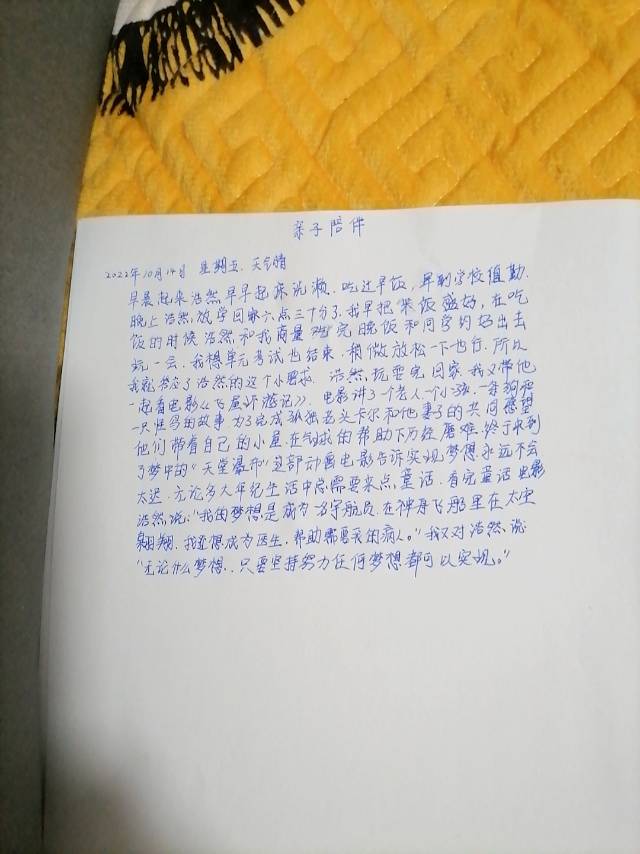 亲子陪伴
2022年10月14日 星期五. 天气晴
早晨起来浩然早早起床洗漱. 吃过早饭, 早到学校值勤.
晚上浩然放学回家六点三十分了. 我早把菜饭盛好, 在吃
饭的时候浩然和我商量吃完晚饭和同学约好出去
玩一会. 我想单元考试也结束. 稍微放松一下也行. 所以
我就答应了浩然的这个小要求. 浩然玩耍完回家. 我又带他
一起看电影《飞屋环游记》. 电影讲了一个老人一个小孩, 一条狗和
一只怪鸟的故事 为了完成孤独老头卡尔和他妻子的共同愿望
他们带着自己的小屋. 在气球的帮助下历经磨难. 终于收到
了梦中的“天堂瀑布”这部动画电影告诉实现梦想永远不会
太迟. 无论多大年纪生活中总需要来点童话. 看完童话电影
浩然说:“我的梦想是成为宇航员. 在神舟飞船里在太空
翱翔. 我还想成为医生. 帮助需要我的病人。”我又对浩然说:
“无论什么梦想. 只要坚持努力任何梦想都可以实现。”